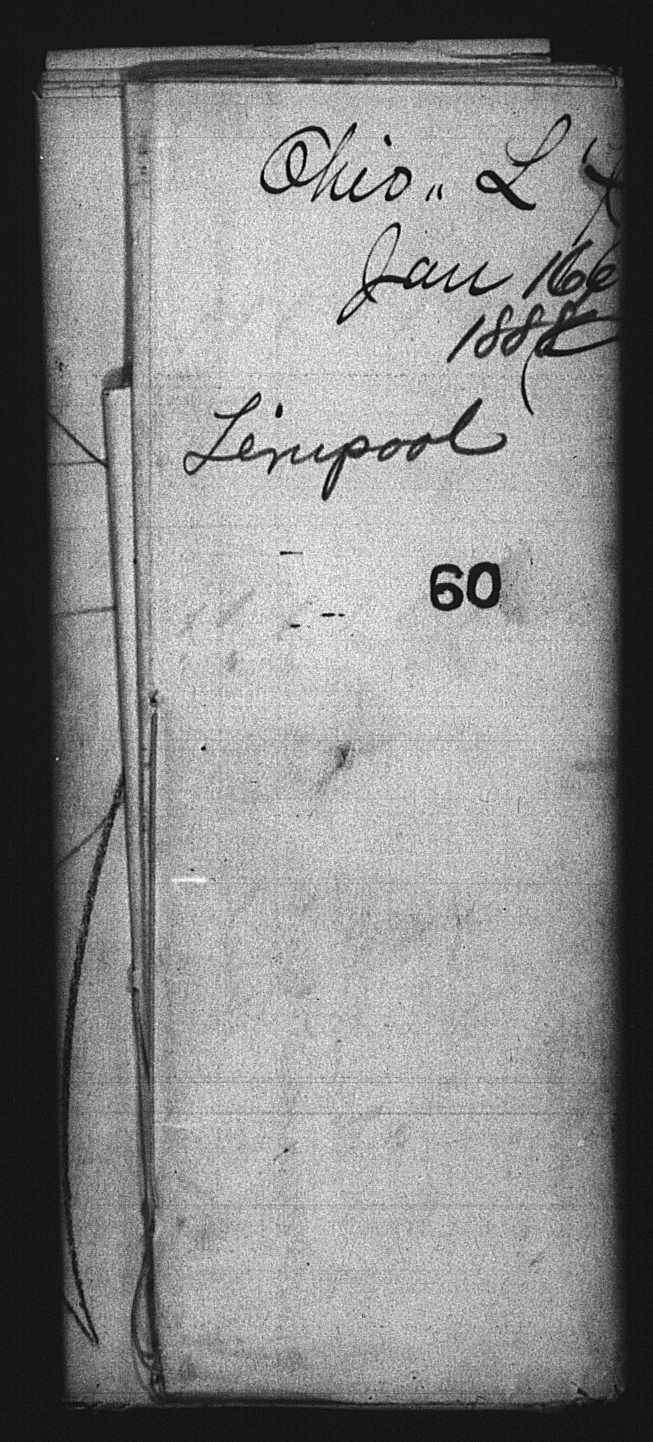 Ohio„ L
Jan 166
1888
Liverpool
60